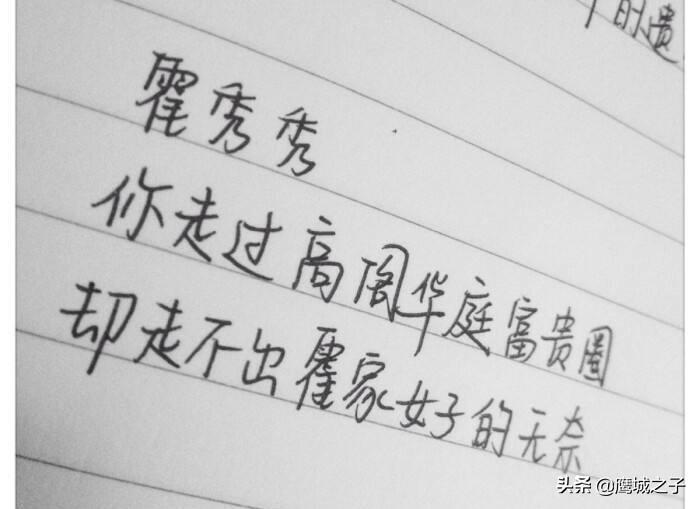 的遗
霍秀秀
你走过高阁华庭富贵圈
却走不出霍家女子的无奈
头条 @鹰城之子